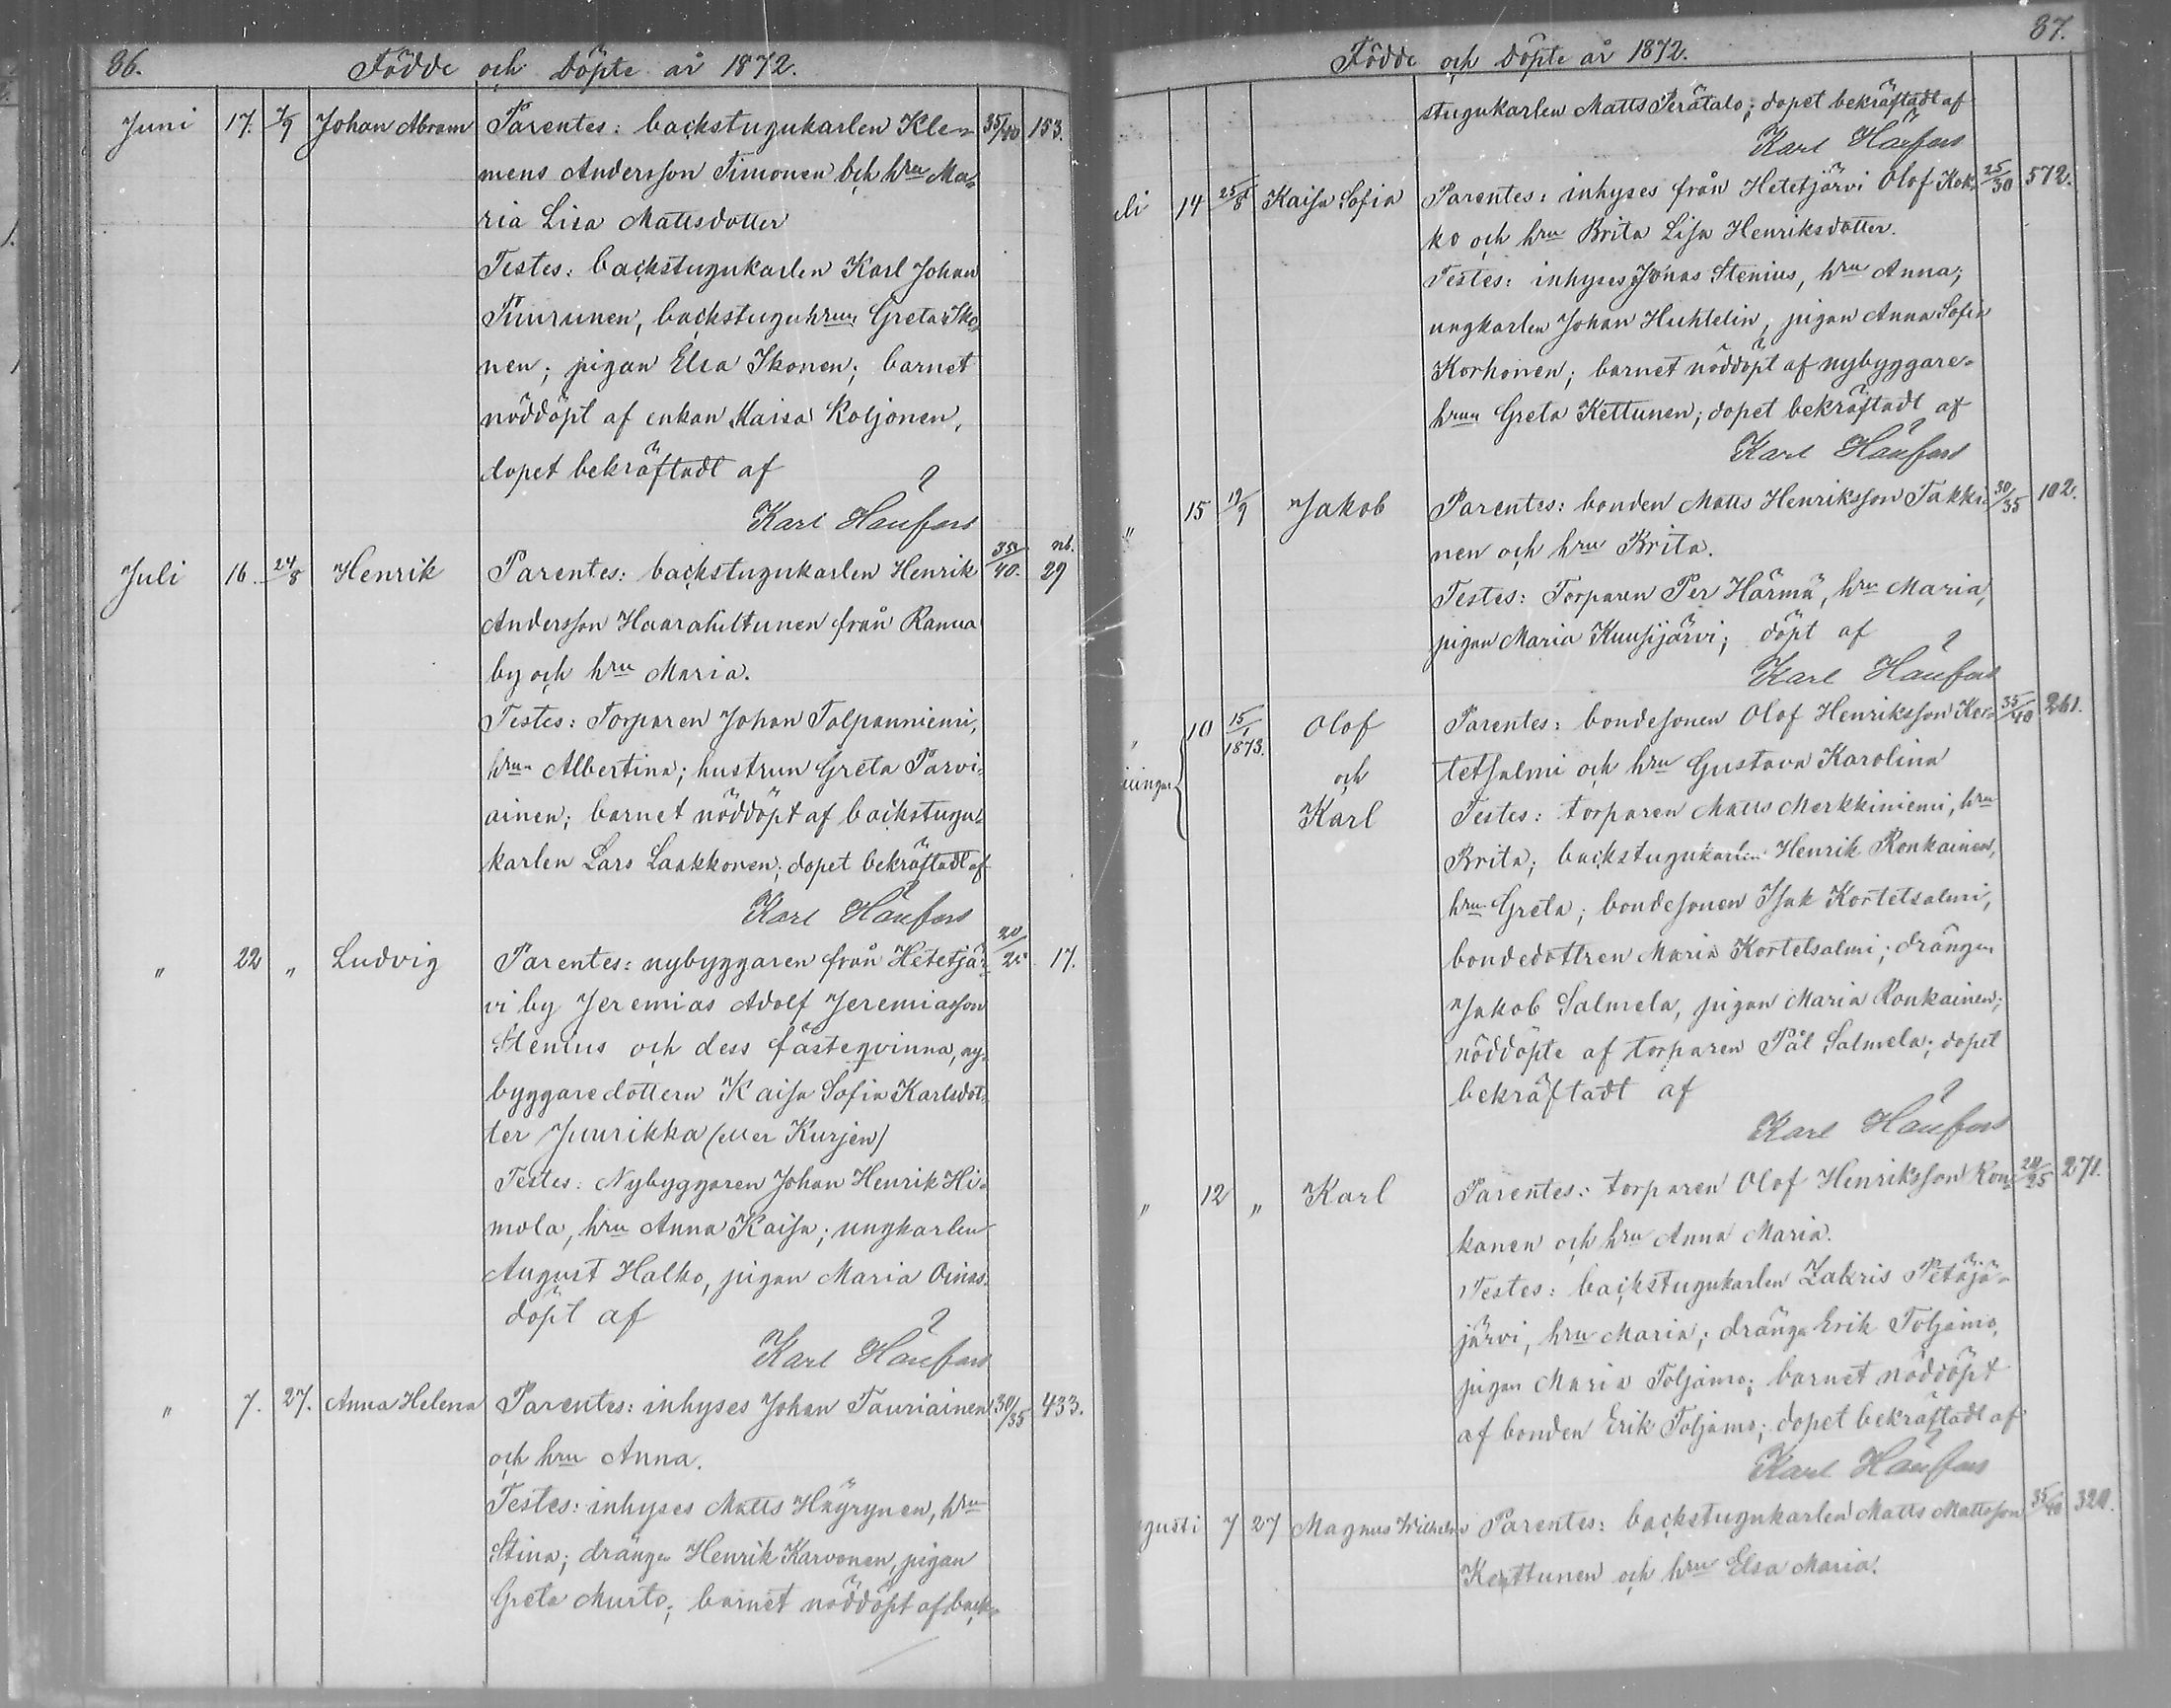 86.
Födde och Döpte år 1872.
Juni 17. 7/9 Johan Abram Parentes: backstugukarlen Kle- 35/40 153.
mens Andersson Timonen och hru Ma-
ria Lisa Mattsdotter
Testes: backstugukarlen Karl Johan
Puurunen, backstuguhrun Greta Iko-
nen; pigan Elsa Ikonen; barnet
nöddöpt af enkan Kaisa Koljonen,
dopet bekräftadt af
Karl Hänfors
Juli 16. 24/8 Henrik Parentes: backstugukarlen Henrik 35/40. nb. 29
Andersson Haarahiltunen från Ranua
by och hru Maria.
Testes: Torparen Johan Tolpanniemi,
hru Albertina; hustrun Greta Parvi-
ainen; barnet nöddöpt af backstugu-
karlen Lars Laakkonen; dopet bekräftadt af
Karl Hänfors
" 22 " Ludvig Parentes: nybyggaren från Hetetjär- 20/25 17.
vi by Jeremias Adolf Jeremiasson
Stenius och dess fästeqvinna, ny-
byggaredottern Kaisa Sofia Karlsdot-
ter Juurikka (eller Kurjen)
Testes: Nybyggaren Johan Henrik Hi-
mola, hru Anna Kaisa; ungkarlen
August Halko, pigan Maria Oinas.
döpt af
Karl Hänfors
" 7. 27. Anna Helena Parentes: inhyses Johan Tauriainen 30/35 433.
och hru Anna.
Testes: inhyses Matts Häyrynen, hru
Stina; drängen Henrik Karvonen, pigan
Greta Murto; barnet nöddöpt af back-
87.
Födde och Döpte år 1872.
stugukarlen Matts Perätalo; dopet bekräftadt af
Karl Hänfors
li 14 25/8 Kaisa Sofia Parentes: inhyses från Hetetjärvi Olof Kok- 25/30 572.
ko och hru Brita Lisa Henriksdotter.
Testes: inhyses Jonas Stenius, hru Anna;
ungkarlen Johan Huhtelin, pigan Anna Sofia
Korhonen; barnet nöddöpt af nybyggare-
hrun Greta Kettunen; dopet bekräftadt af
Karl Hänfors
" 15 19/9 Jakob Parentes: bonden Matts Henriksson Takki- 30/35 102.
nen och hru Brita.
Testes: Torparen Per Härmä, hru Maria,
pigan Maria Kuusijärvi; döpt af
Karl Hänfors
" 10 15/1 1873. Olof Parentes: bondesonen Olof Henriksson Kor- 35/40 261.
och tetsalmi och hru Gustava Karolina
Karl Testes: torparen Matts Merkkiniemi, hru
Brita; backstugukarlen Henrik Ronkainen,
hru Greta; bondesonen Isak Kortetsalmi,
bondedottren Maria Kortetsalmi; drängen
Jakob Salmela, pigan Maria Ronkainen;
nöddöpte af torparen Pål Salmela; dopet
bekräftadt af
Karl Hänfors
" 12 " Karl Parentes: torparen Olof Henriksson Ron- 20/25 271.
kanen och hru Anna Maria.
Testes: backstugukarlen Zakris Petäjä-
järvi, hru Maria; dränge Erik Toljamo,
pigan Maria Toljamo; barnet nöddöpt
af bonden Erik Toljamo; dopet bekräftadt af
Karl Hänfors
gusti 7 27 Magnus Wilhelm Parentes: backstugukarlen Matts Mattsson 35/40 320.
Kerttunen och hru Elsa Maria.